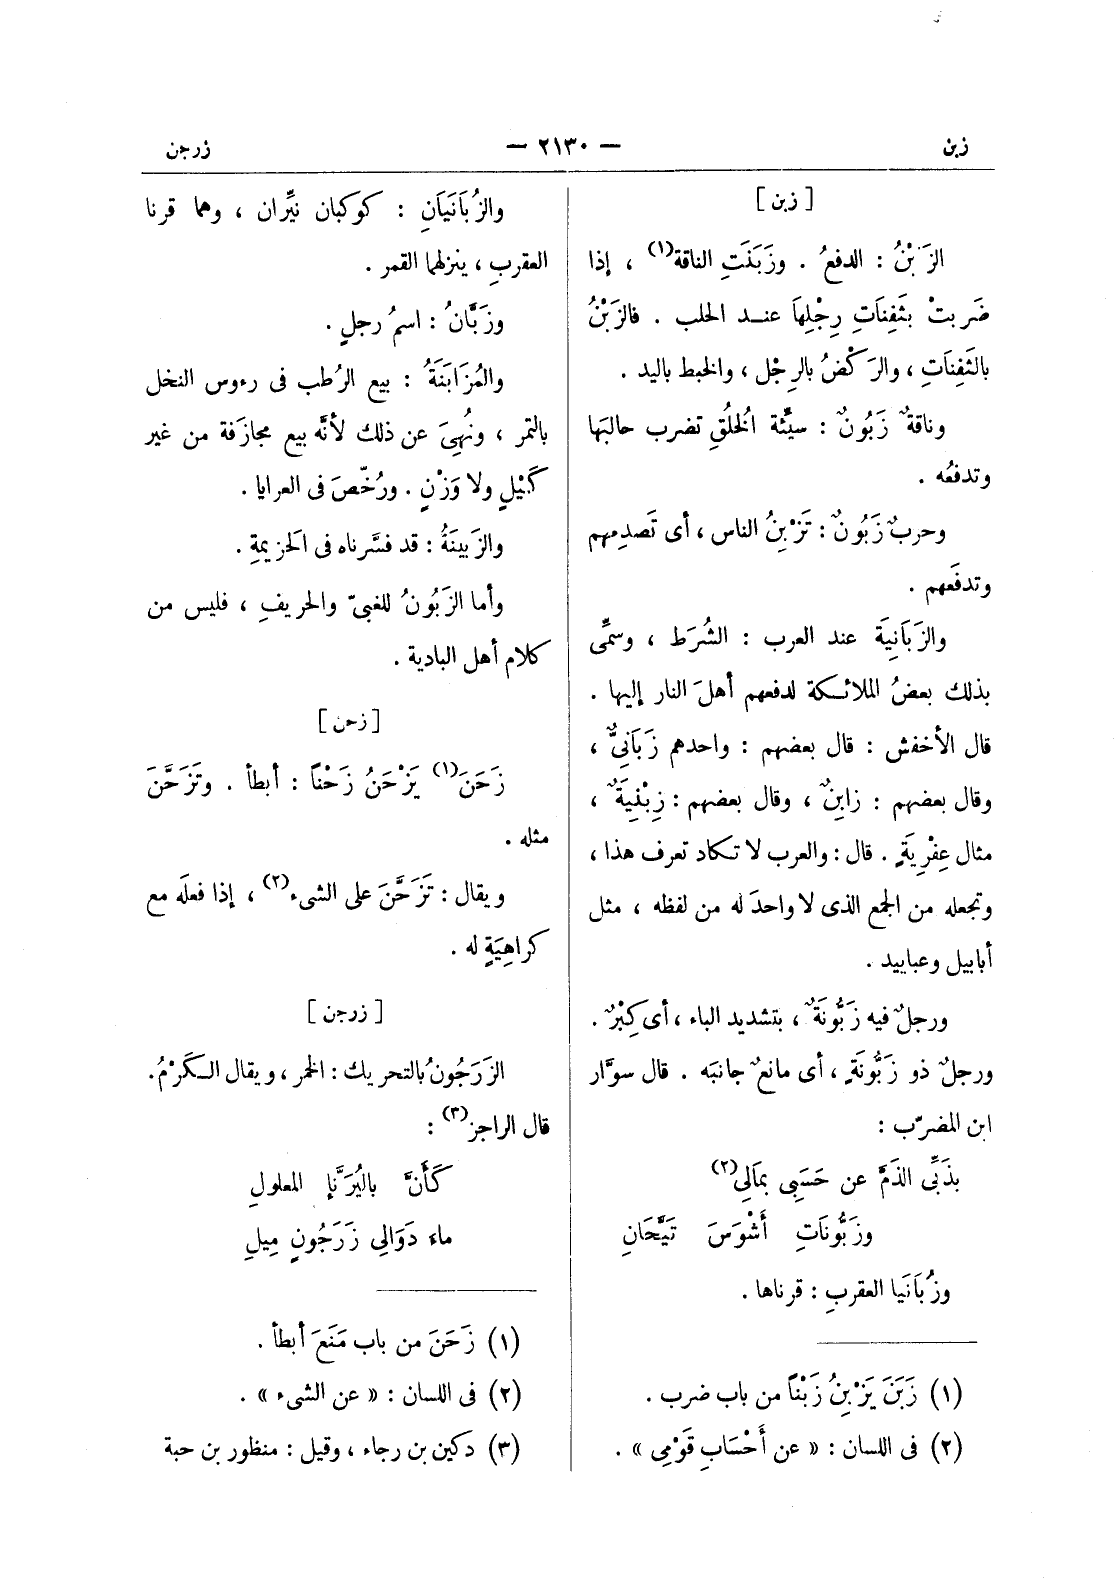 زبن
— ٢١٣٠ —
زرجن
[ زبن ]
الزَبْنُ : الدفعُ . وزَبَنَتِ الناقة(١) ، إذا
ضَربتْ بثَفِنَاتِ رِجْلِهَا عند الحلب . فالزَبْنُ
بالثَفِنَاتِ ، والرَكْضُ بالرِجْل ، والخبط باليد .
وناقةٌ زَبُونٌ : سيِّئة الخُلُقِ تضرب حالبَها
وتدفعُه .
وحربٌ زَبُونٌ : تَزْبِنُ الناس ، أى تَصدِمهم
وتدفَعهم .
والزَبَانِيَة عند العرب : الشُرَط ، وسمِّى
بذلك بعضُ الملائكة لدفعهم أهلَ النار إليها .
قال الأخفش : قال بعضهم : واحدهم زَبَانِىٌّ ،
وقال بعضهم : زابِنٌ ، وقال بعضهم : زِبْنِيَةٌ ،
مثال عِفْرِيَةٍ . قال : والعرب لا تكاد تعرف هذا ،
وتجعله من الجمع الذى لا واحدَ له من لفظه ، مثل
أبابيل وعباييد .
ورجلٌ فيه زَبُّونَةٌ ، بتشديد الباء ، أى كِبْرٌ .
ورجلٌ ذو زَبُّونَةٍ ، أى مانعٌ جانبَه . قال سوَّار
ابن المضرّب :
بذَبِّى الذَمَّ عن حَسَبِى بمَالِى(٢)
وزَبُّونَاتِ أَشْوَسَ تَيَّحَانِ
وزُبَانَيا العقربِ : قرناها .
(١) زَبَنَ يَزْبِنُ زَبْناً من باب ضرب .
(٢) فى اللسان : « عن أَحْسَابِ قَوْمِى » .
والزُبَانَيَانِ : كوكبان نيِّران ، وهما قرنا
العقربِ ، ينزلهما القمر .
وزَبَّانُ : اسمُ رجلٍ .
والمُزَابَنَةُ : بيع الرُطب فى رءوس النخل
بالتمر ، ونُهِىَ عن ذلك لأنَّه بيع مجازَفة من غير
كَيْلٍ ولا وَزْنٍ . ورُخّصَ فى العرايا .
والزَبينَةُ : قد فسَّرناه فى الحَزيمةِ .
وأما الزَبُونُ للغبىّ والحريفِ ، فليس من
كلام أهل البادية .
[ زحن ]
زَحَنَ(١) يَزْحَنُ زَحْناً : أبطأ . وتَزَحَّنَ
مثله .
ويقال : تَزَحَّنَ على الشىء(٢) ، إذا فعلَه مع
كراهِيَةٍ له .
[ زرجن ]
الزَرَجُونُ بالتحريك : الخمر ، ويقال الكَرْمُ .
قال الراجز(٣) :
كَأَنَّ باليُرَنَّإِ المعلولِ
ماءَ دَوَالِى زَرَجُونٍ مِيلِ
(١) زَحَنَ من باب مَنَعَ أبطأ .
(٢) فى اللسان : « عن الشىء » .
(٣) دكين بن رجاء ، وقيل : منظور بن حبة